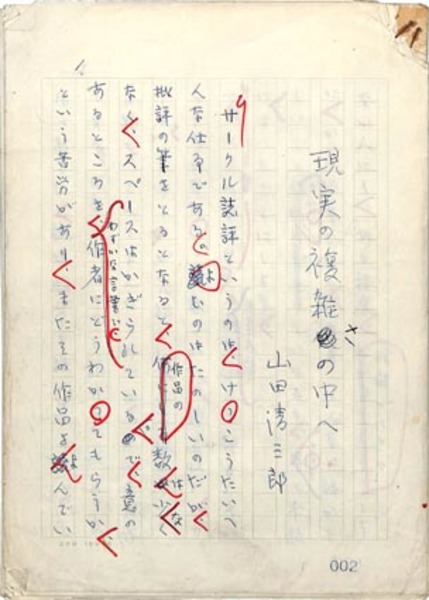 現実の複雑さの中へ
山田清三郎
サークル誌評というのは、けっこうたいへ
んな仕事である。よむのはたのしいのだが、
批評の筆をとるとなると、作品の数は少く
なく、スペースはかぎられているので、意の
わずかな言葉で
あるところを、作者にどうわかってもらうか、
という苦労があり、またその作品をよんでい
002